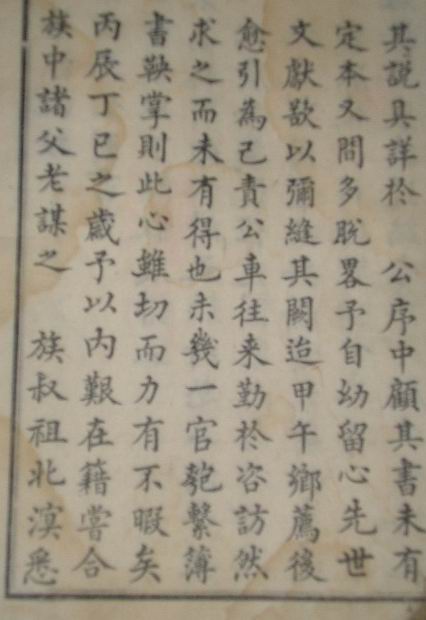 其說具詳於 公序中顧其書未有
定本又間多脫畧予自幼留心先世
文獻歆以彌縫其闕迨甲午鄉薦後
愈引為己責公車往来勤於咨訪然
求之而未有得也未幾一官匏繫簿
書鞅掌則此心雖切而力有不暇矣
丙辰丁巳之歲予以内艱在籍嘗合
族中諸父老謀之 族叔祖北溟悉